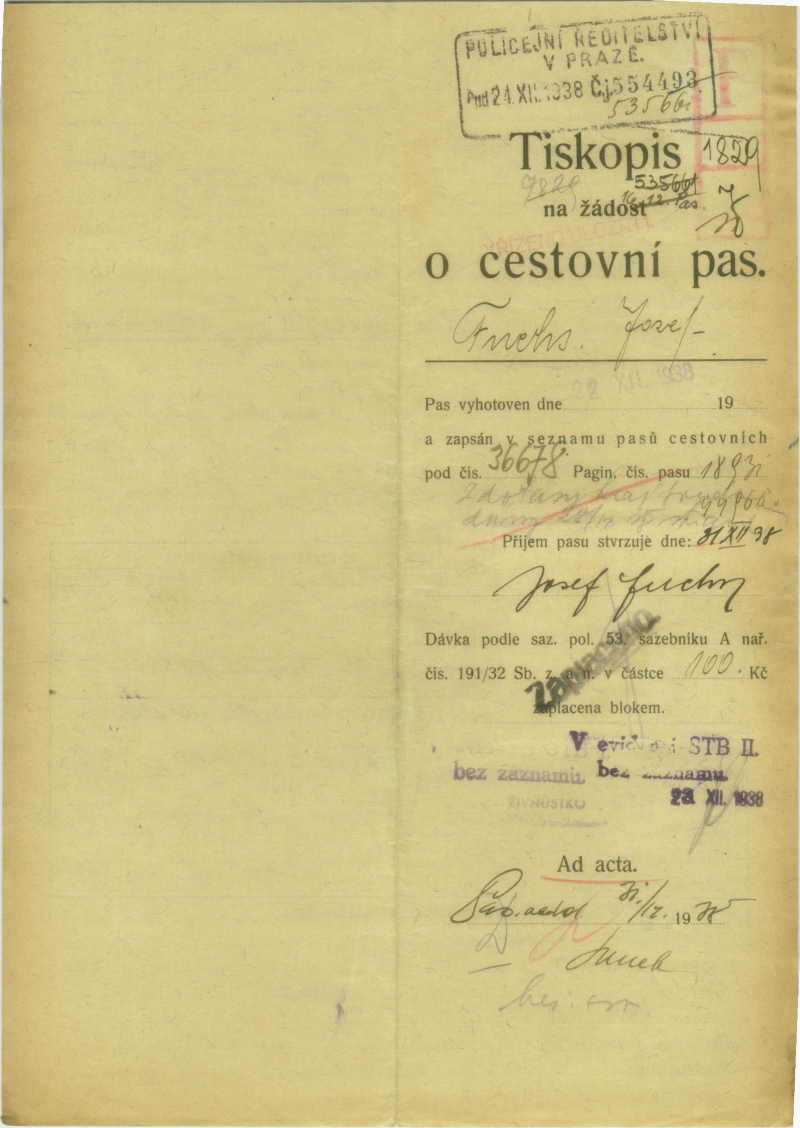 POLICEJNÍ ŘEDITELSTVÍ
V PRAZE.
24.XII.1938 Čj.554493
53566
Tiskopis 1829
9829
53566
na žádost
o cestovní pas.
Fuchs. Josef
22 XII. 1938
Pas vyhotoven dne 19
a zapsán v seznamu pasů cestovních
pod čís. 36678. Pagin. čís. pasu
Příjem pasu stvrzuje dne: 31 XII 38
Josef Fuchs
Dávka podle saz. pol. 53. sazebníku A nař.
čís. 191/32 Sb. z. a n. v částce 100. Kč
Zaplaceno
zaplacena blokem.
V evidenci STB II.
bez záznamu. bez záznamu.
23 XII. 1938
ŽIVNOSTKO
Ad acta.
31./12. 1938